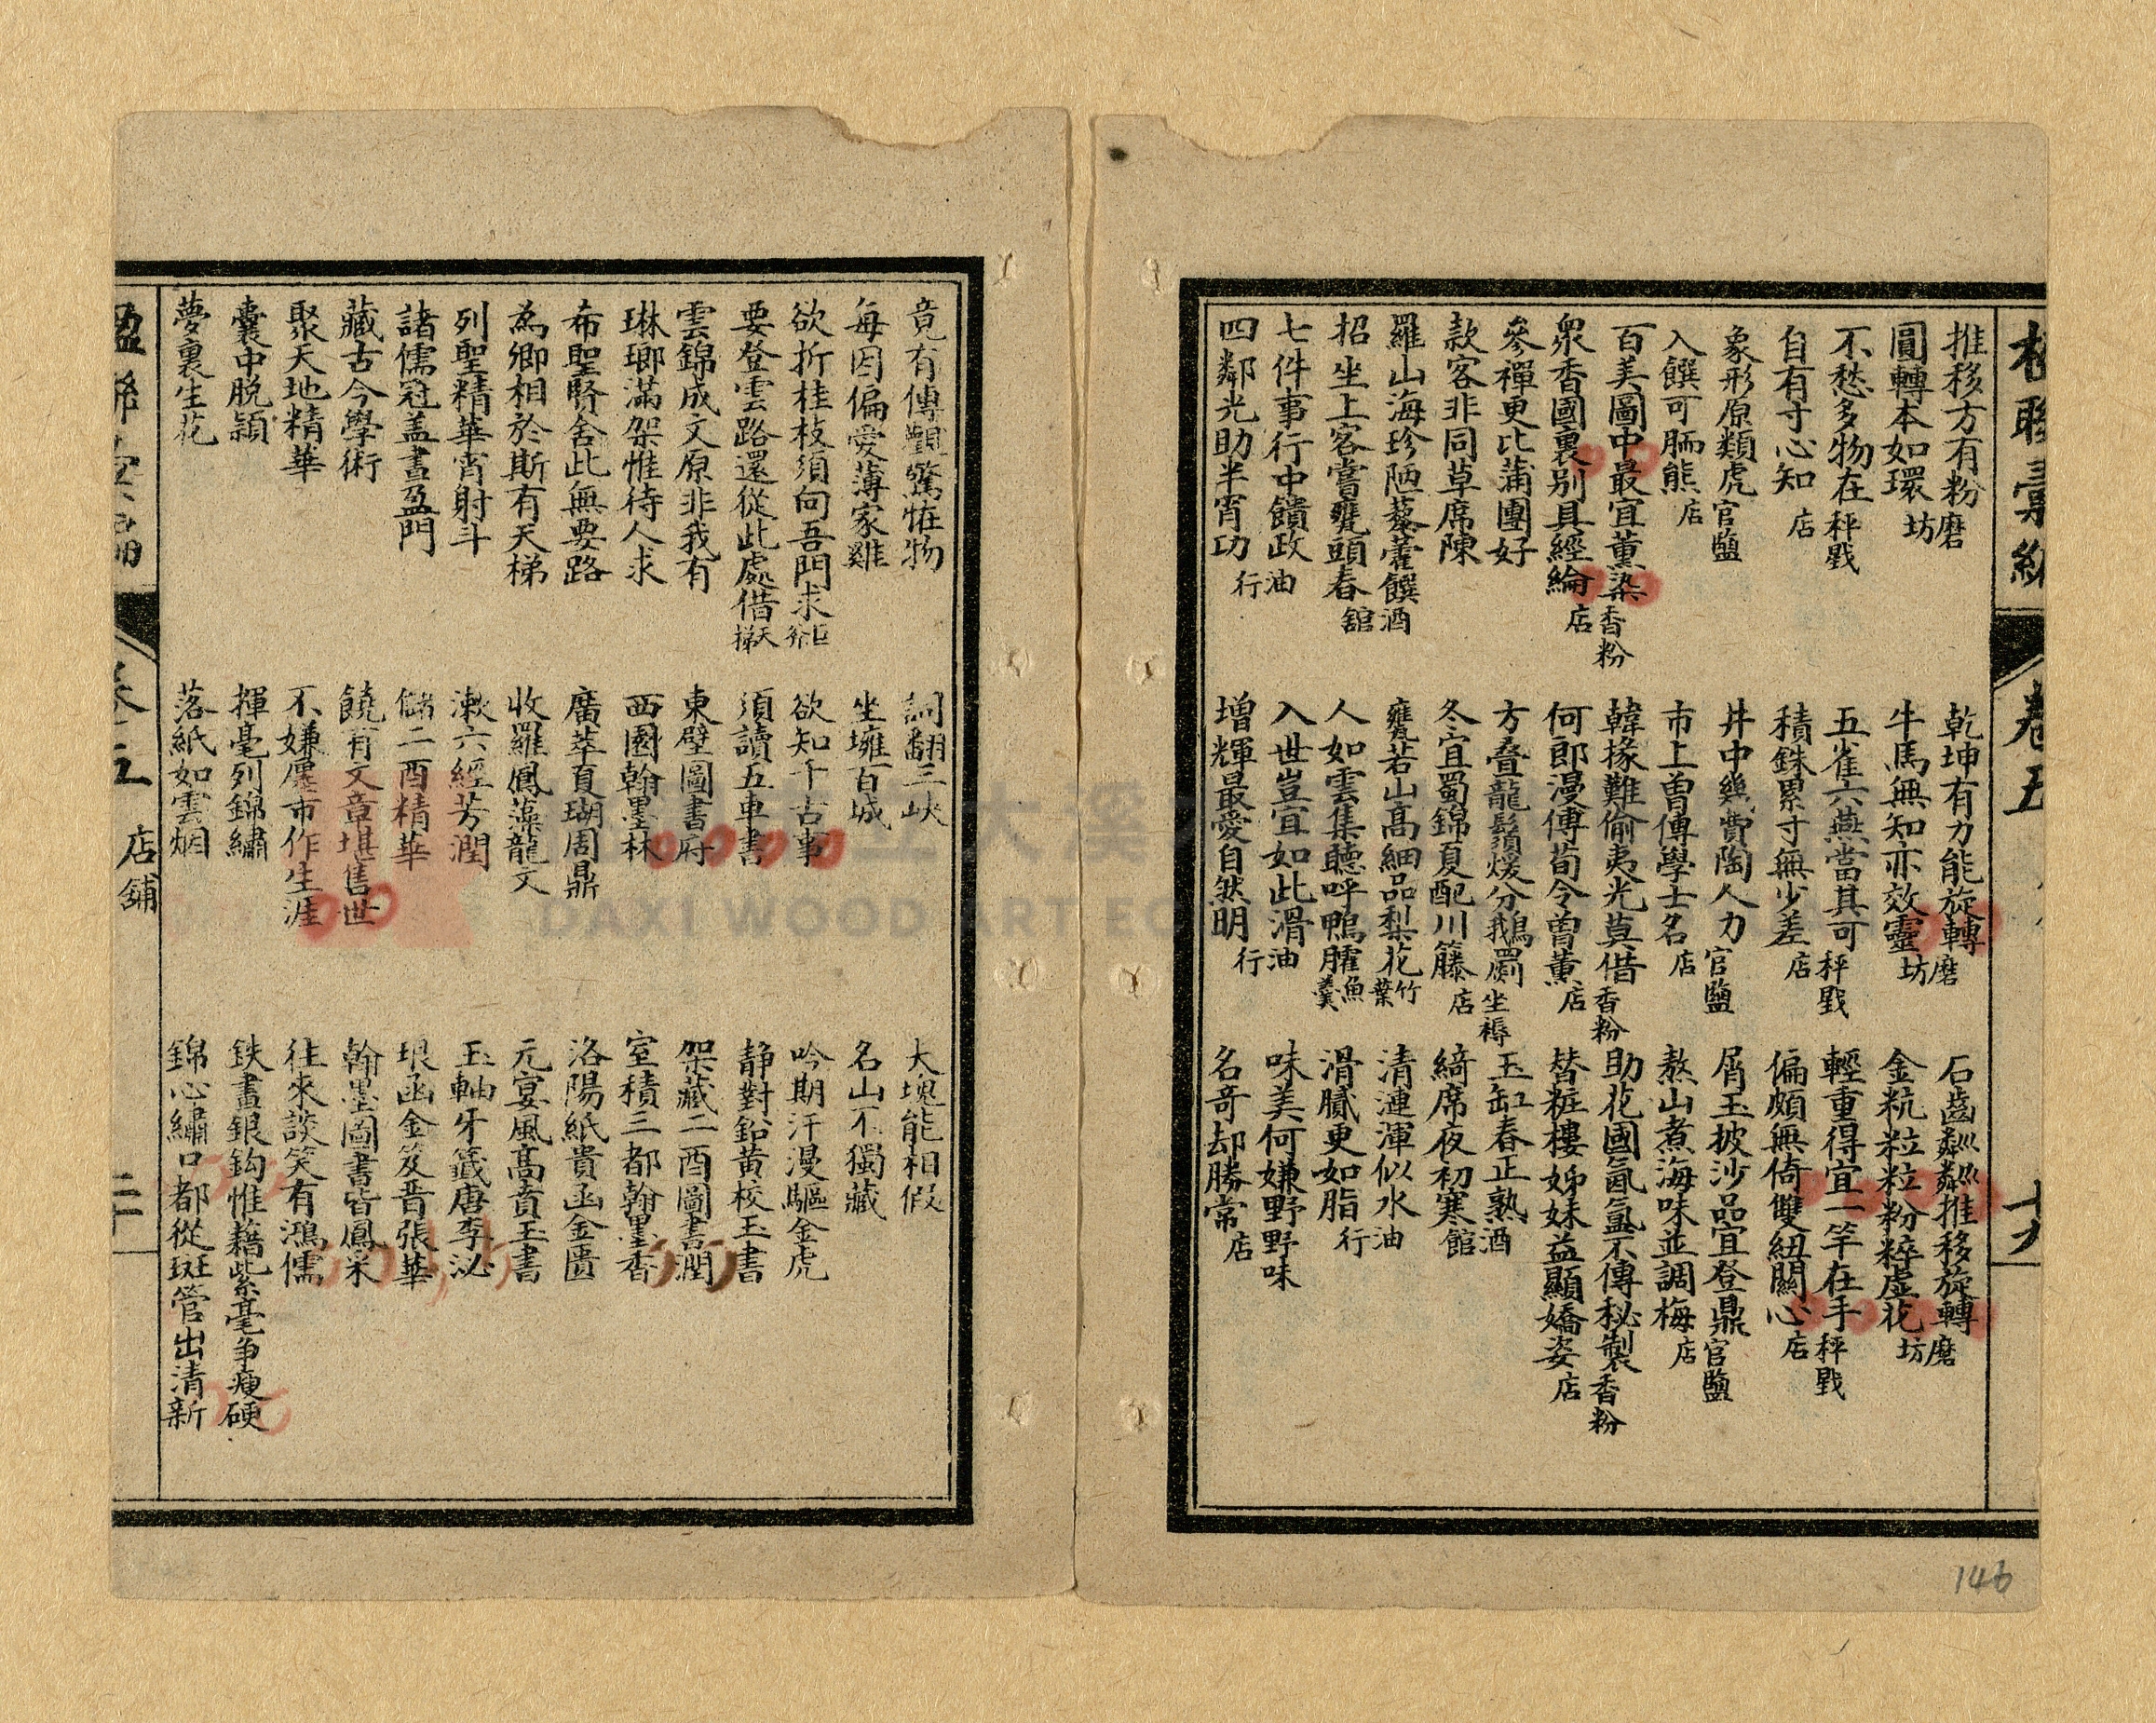 楹聯彙編
卷五
十九
推移方有粉磨
圓轉本如環坊
不愁多物在秤戥
自有寸心知店
象形原類虎官鹽
入饌可胹熊店
百美圖中最宜薰染香粉
衆香國裏別具經綸店
參禪更比蒲團好
款客非同草席陳
羅山海珍陋藜藿饌酒
招坐上客嘗甕頭春舘
七件事行中饋政油
四鄰光助半宵功行
乾坤有力能旋轉磨
牛馬無知亦效靈坊
五雀六燕當其可秤戥
積銖累寸無少差店
井中幾費陶人力官鹽
市上曾傳學士名店
韓掾難偷夷光莫借香粉
何郎漫傅荀令曾薰店
方疊龍鬚煖分鵝罽坐褥
冬宜蜀錦夏配川籐店
甕若山高細品梨花竹葉
人如雲集聽呼鴨臛魚羹
入世豈宜如此滑油
增輝最愛自然明行
石齒粼粼推移旋轉磨
金粇粒粒粉粹虛花坊
輕重得宜一竿在手秤戥
偏頗無倚雙紐關心店
屑玉披沙品宜登鼎官鹽
熬山煮海味並調梅店
助花國氤氳不傳秘製香粉
替粧樓姊妹益顯嬌姿店
玉缸春正熟酒
綺席夜初寒館
清漣渾似水油
滑膩更如脂行
味美何嫌野野味
名奇却勝常店
竟有傳觀驚怪物
每因偏愛薄家雞
欲折桂枝須向吾門求
要登雲路還從此處借天梯
雲錦成文原非我有
琳瑯滿架惟待人求
布聖賢舍此無要路
為卿相於斯有天梯
列聖精華宵射斗
諸儒冠盖晝盈門
藏古今學術
聚天地精華
囊中脫穎
夢裏生花
詞翻三峽
坐擁百城
欲知千古事
須讀五車書
東壁圖書府
西園翰墨林
廣萃夏瑚周鼎
收羅鳳藻龍文
漱六經芳潤
儲二酉精華
饒有文章堪售世
不嫌廛市作生涯
揮毫列錦繡
落紙如雲烟
大塊能相假
名山不獨藏
吟期汗漫驅金虎
静對鉛黄校玉書
架藏二酉圖書潤
室積三都翰墨香
洛陽紙貴函金匱
元宴風高賁玉書
玉軸牙籤唐李泌
琅函金笈晋張華
翰墨圖書皆鳳采
往來談笑有鴻儒
鉄畫銀鈎惟藉紫毫争瘦硬
錦心繡口都從斑管出清新
楹聯彙編
卷五
店鋪
二十
DAXI WOOD ART EC
146